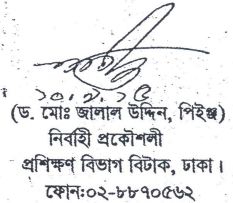 ২০.২.১৫
(ড. মোঃ জালাল উদ্দিন, পিইঞ্জ)
নির্বাহী প্রকৌশলী
প্রশিক্ষণ বিভাগ বিটাক, ঢাকা।
ফোন:০২-৮৮৭০৫৬২